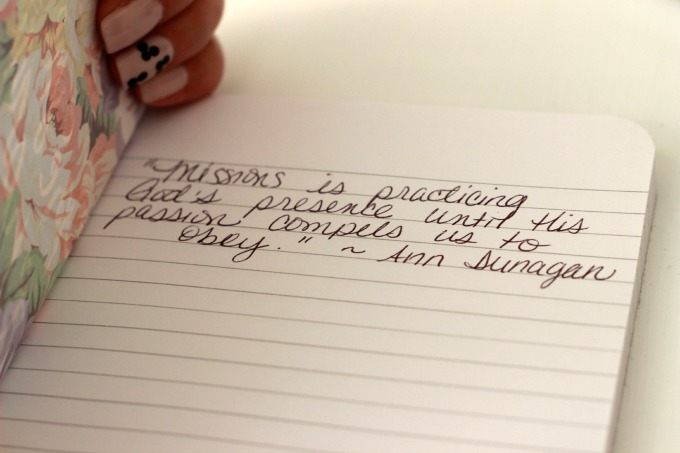 "Missions is practicing
God's presence until His
passion compels us to
obey." ~ Ann Dunagan